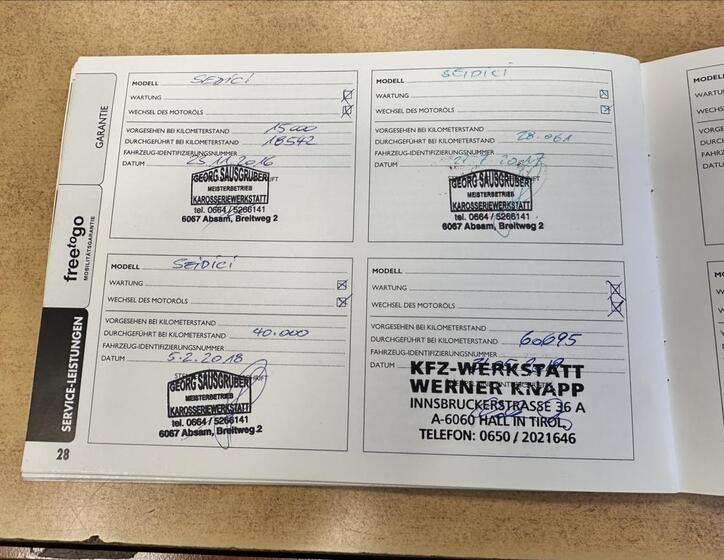 GARANTIE
freetogo
MOBILITÄTSGARANTIE
SERVICE-LEISTUNGEN
28
MODELL SEDICI
WARTUNG
WECHSEL DES MOTORÖLS
VORGESEHEN BEI KILOMETERSTAND 15000
DURCHGEFÜHRT BEI KILOMETERSTAND 18542
FAHRZEUG-IDENTIFIZIERUNGSNUMMER
DATUM 25.11.2016
GEORG SAUSGRUBER
MEISTERBETRIEB
KAROSSERIEWERKSTATT
tel. 0664 / 5266141
6067 Absam, Breitweg 2
MODELL SEIDICI
WARTUNG
WECHSEL DES MOTORÖLS
VORGESEHEN BEI KILOMETERSTAND
DURCHGEFÜHRT BEI KILOMETERSTAND 28.061
FAHRZEUG-IDENTIFIZIERUNGSNUMMER
DATUM 7.2017
GEORG SAUSGRUBER
MEISTERBETRIEB
KAROSSERIEWERKSTATT
tel. 0664 / 5266141
6067 Absam, Breitweg 2
MODELL SEIDICI
WARTUNG
WECHSEL DES MOTORÖLS
VORGESEHEN BEI KILOMETERSTAND
DURCHGEFÜHRT BEI KILOMETERSTAND 40.000
FAHRZEUG-IDENTIFIZIERUNGSNUMMER
DATUM 5.2.2018
GEORG SAUSGRUBER
MEISTERBETRIEB
KAROSSERIEWERKSTATT
tel. 0664 / 5266141
6067 Absam, Breitweg 2
MODELL
WARTUNG
WECHSEL DES MOTORÖLS
VORGESEHEN BEI KILOMETERSTAND
DURCHGEFÜHRT BEI KILOMETERSTAND 60695
FAHRZEUG-IDENTIFIZIERUNGSNUMMER
DATUM
KFZ-WERKSTATT
WERNER KNAPP
INNSBRUCKERSTRASSE 36 A
A-6060 HALL IN TIROL
TELEFON: 0650 / 2021646